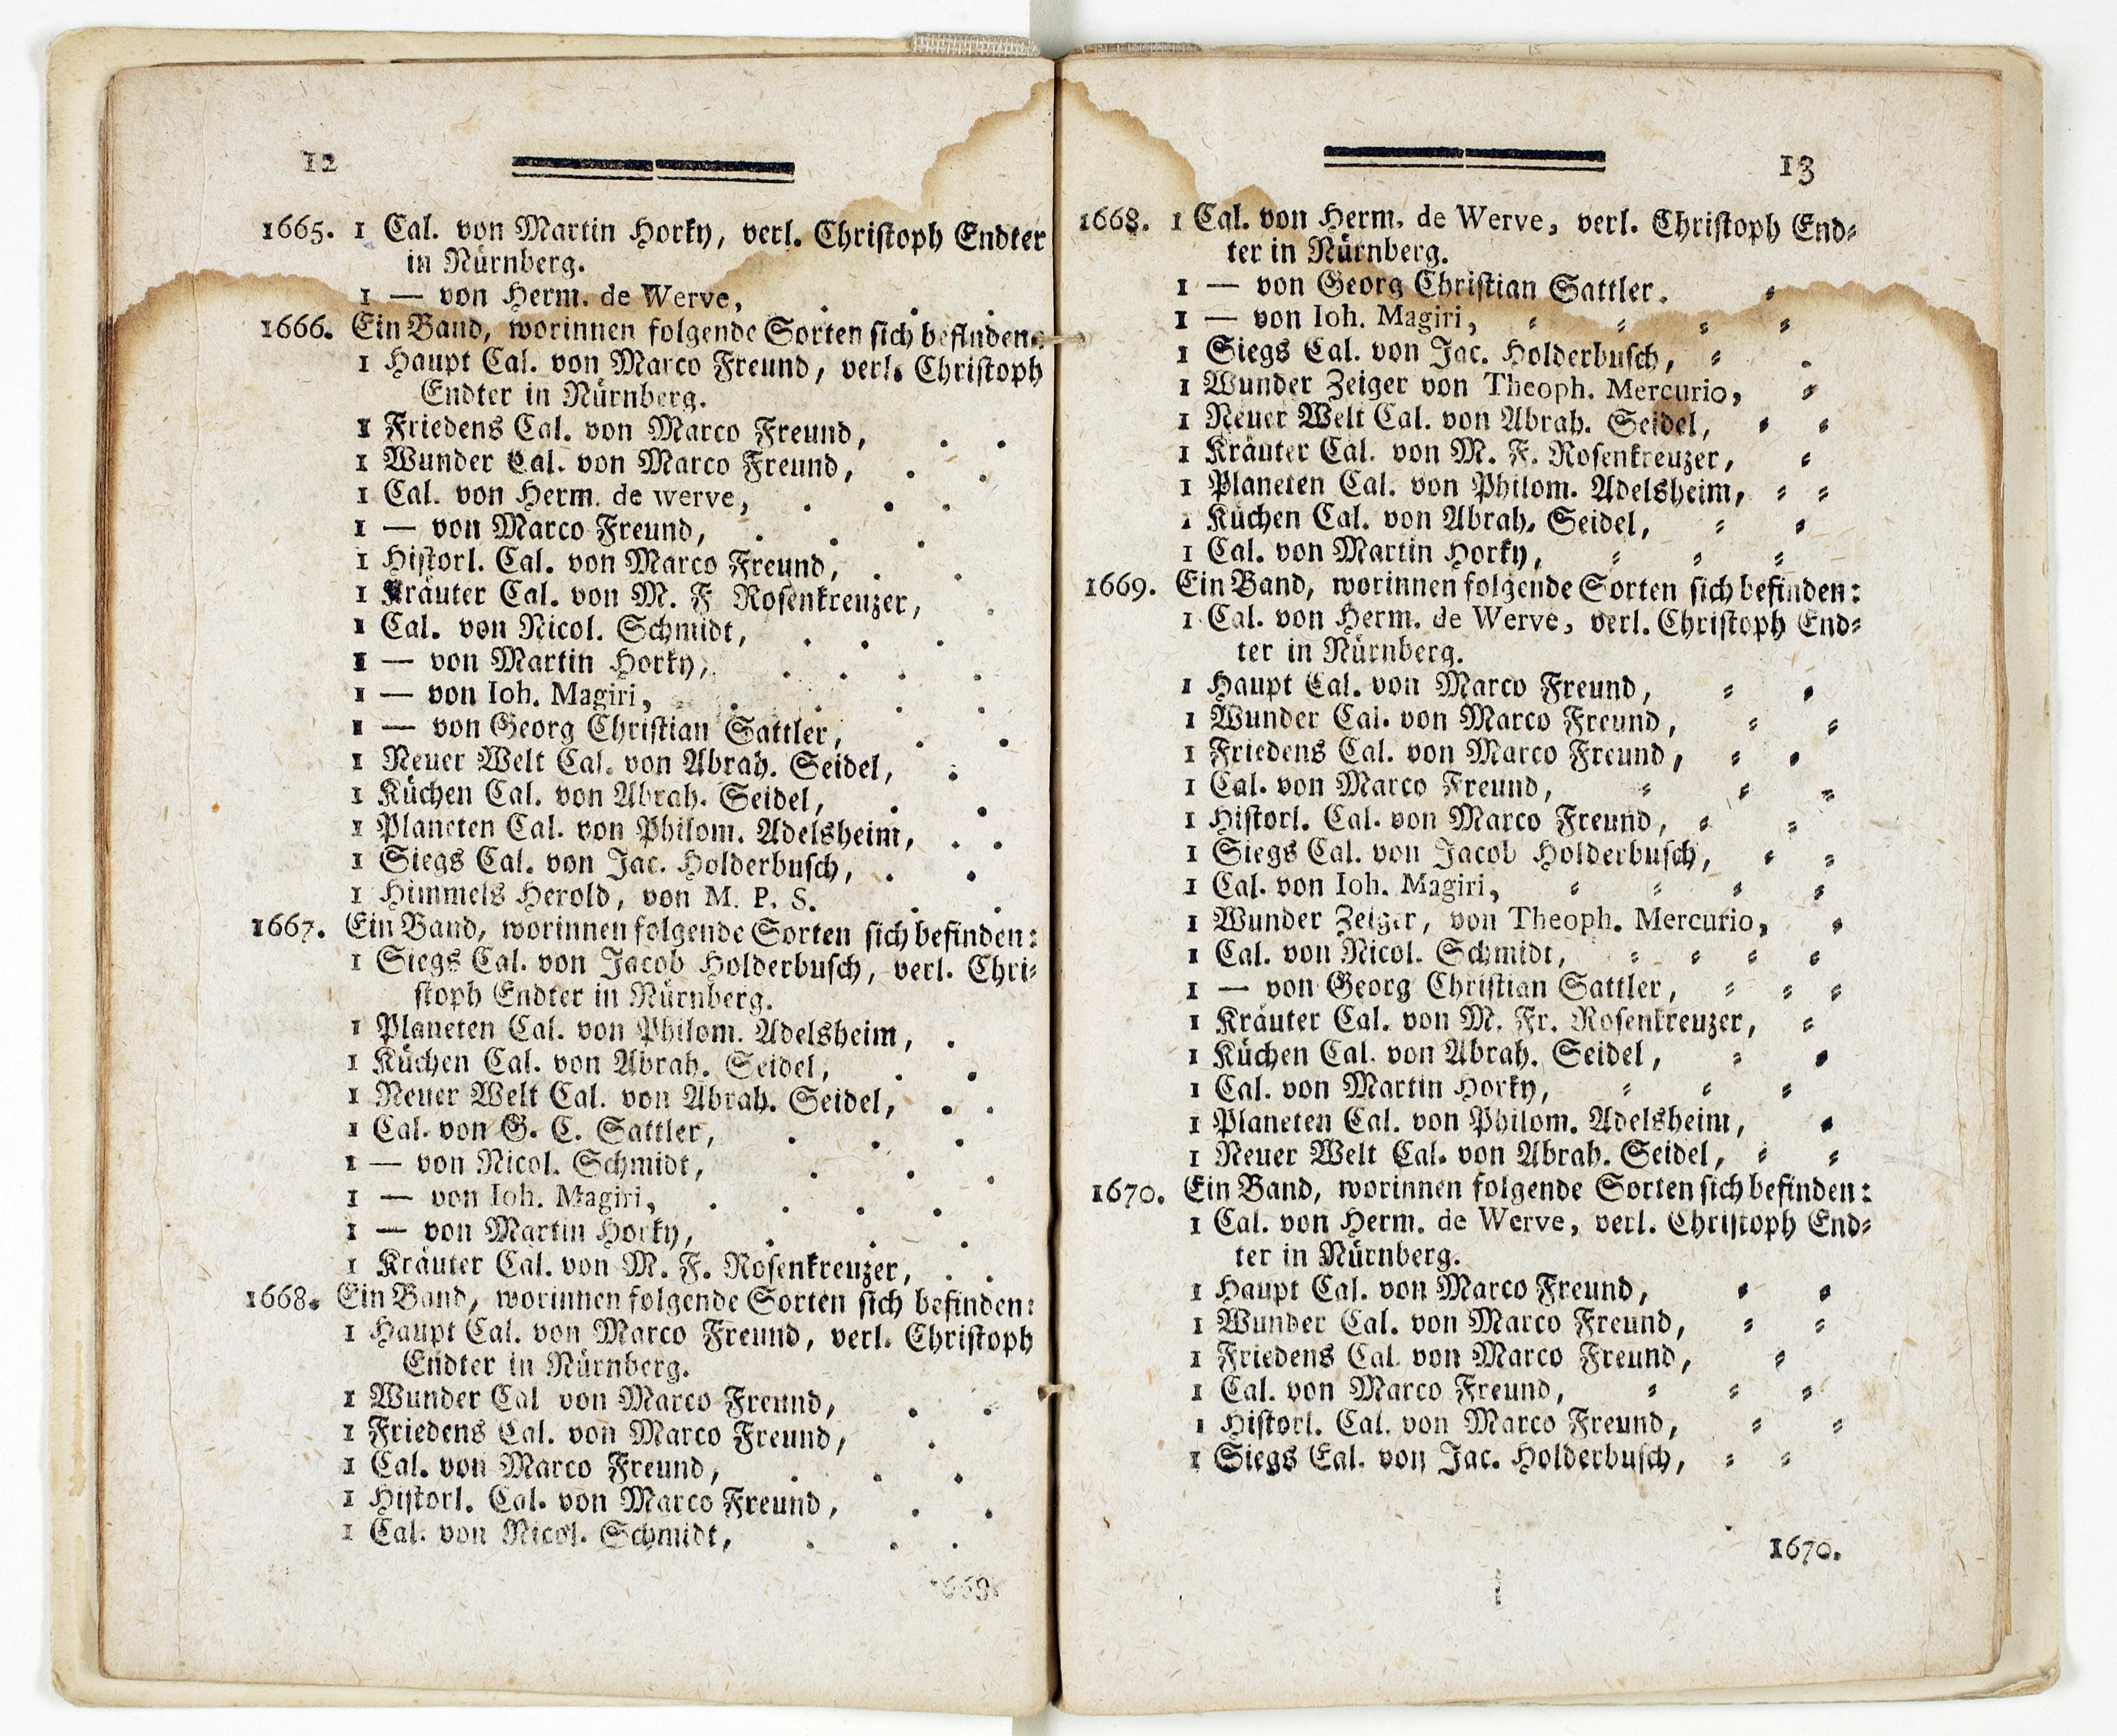 12
1665. 1 Cal. von Martin Horky, verl. Christoph Endter
in Nürnberg.
1 — von Herm. de Werve, . . .
1666. Ein Band, worinnen folgende Sorten sich befinden:
1 Haupt Cal. von Marco Freund, verl. Christoph
Endter in Nürnberg.
1 Friedens Cal. von Marco Freund, . .
1 Wunder Cal. von Marco Freund, . .
1 Cal. von Herm. de werve, . . .
1 — von Marco Freund, . . .
1 Historl. Cal. von Marco Freund, . .
1 Kräuter Cal. von M. F Rosenkreuzer, .
1 Cal. von Nicol. Schmidt, . . .
1 — von Martin Horky, . . . .
1 — von Ioh. Magiri, . . . .
1 — von Georg Christian Sattler, . .
1 Neuer Welt Cal. von Abrah. Seidel, .
1 Küchen Cal. von Abrah. Seidel, . .
1 Planeten Cal. von Philom. Adelsheim, . .
1 Siegs Cal. von Jac. Holderbusch, . .
1 Himmels Herold, von M. P. S. . .
1667. Ein Band, worinnen folgende Sorten sich befinden:
1 Siegs Cal. von Jacob Holderbusch, verl. Chri-
stoph Endter in Nürnberg.
1 Planeten Cal. von Philom. Adelsheim, .
1 Küchen Cal. von Abrah. Seidel, . .
1 Neuer Welt Cal. von Abrah. Seidel, . .
1 Cal. von G. C. Sattler, . . .
1 — von Nicol. Schmidt, . . .
1 — von Ioh. Magiri, . . . .
1 — von Martin Horky, . . .
1 Kräuter Cal. von M. F. Rosenkreuzer, . .
1668. Ein Band, worinnen folgende Sorten sich befinden:
1 Haupt Cal. von Marco Freund, verl. Christoph
Endter in Nürnberg.
1 Wunder Cal von Marco Freund, . .
1 Friedens Cal. von Marco Freund, .
1 Cal. von Marco Freund, . . .
1 Historl. Cal. von Marco Freund, . .
1 Cal. von Nicol. Schmidt, . . .
13
1668. 1 Cal. von Herm. de Werve, verl. Christoph End-
ter in Nürnberg.
1 — von Georg Christian Sattler. -
1 — von Ioh. Magiri, - - - -
1 Siegs Cal. von Jac. Holderbusch, - -
1 Wunder Zeiger von Theoph. Mercurio, -
1 Neuer Welt Cal. von Abrah. Seidel, - -
1 Kräuter Cal. von M. F. Rosenkreuzer, -
1 Planeten Cal. von Philom. Adelsheim, - -
1 Küchen Cal. von Abrah. Seidel, - -
1 Cal. von Martin Horky, - - -
1669. Ein Band, worinnen folgende Sorten sich befinden:
1 Cal. von Herm. de Werve, verl. Christoph End-
ter in Nürnberg.
1 Haupt Cal. von Marco Freund, - -
1 Wunder Cal. von Marco Freund, - -
1 Friedens Cal. von Marco Freund, - -
1 Cal. von Marco Freund, - - -
1 Historl. Cal. von Marco Freund, - -
1 Siegs Cal. von Jacob Holderbusch, - -
1 Cal. von Ioh. Magiri, - - - -
1 Wunder Zeiger, von Theoph. Mercurio, -
1 Cal. von Nicol. Schmidt, - - - -
1 — von Georg Christian Sattler, - - -
1 Kräuter Cal. von M. Fr. Rosenkreuzer, -
1 Küchen Cal. von Abrah. Seidel, - -
1 Cal. von Martin Horky, - - -
1 Planeten Cal. von Philom. Adelsheim, -
1 Neuer Welt Cal. von Abrah. Seidel, - -
1670. Ein Band, worinnen folgende Sorten sich befinden:
1 Cal. von Herm. de Werve, verl. Christoph End-
ter in Nürnberg.
1 Haupt Cal. von Marco Freund, - -
1 Wunder Cal. von Marco Freund, - -
1 Friedens Cal. von Marco Freund, -
1 Cal. von Marco Freund, - - -
1 Historl. Cal. von Marco Freund, - -
1 Siegs Cal. von Jac. Holderbusch, - -
1670.